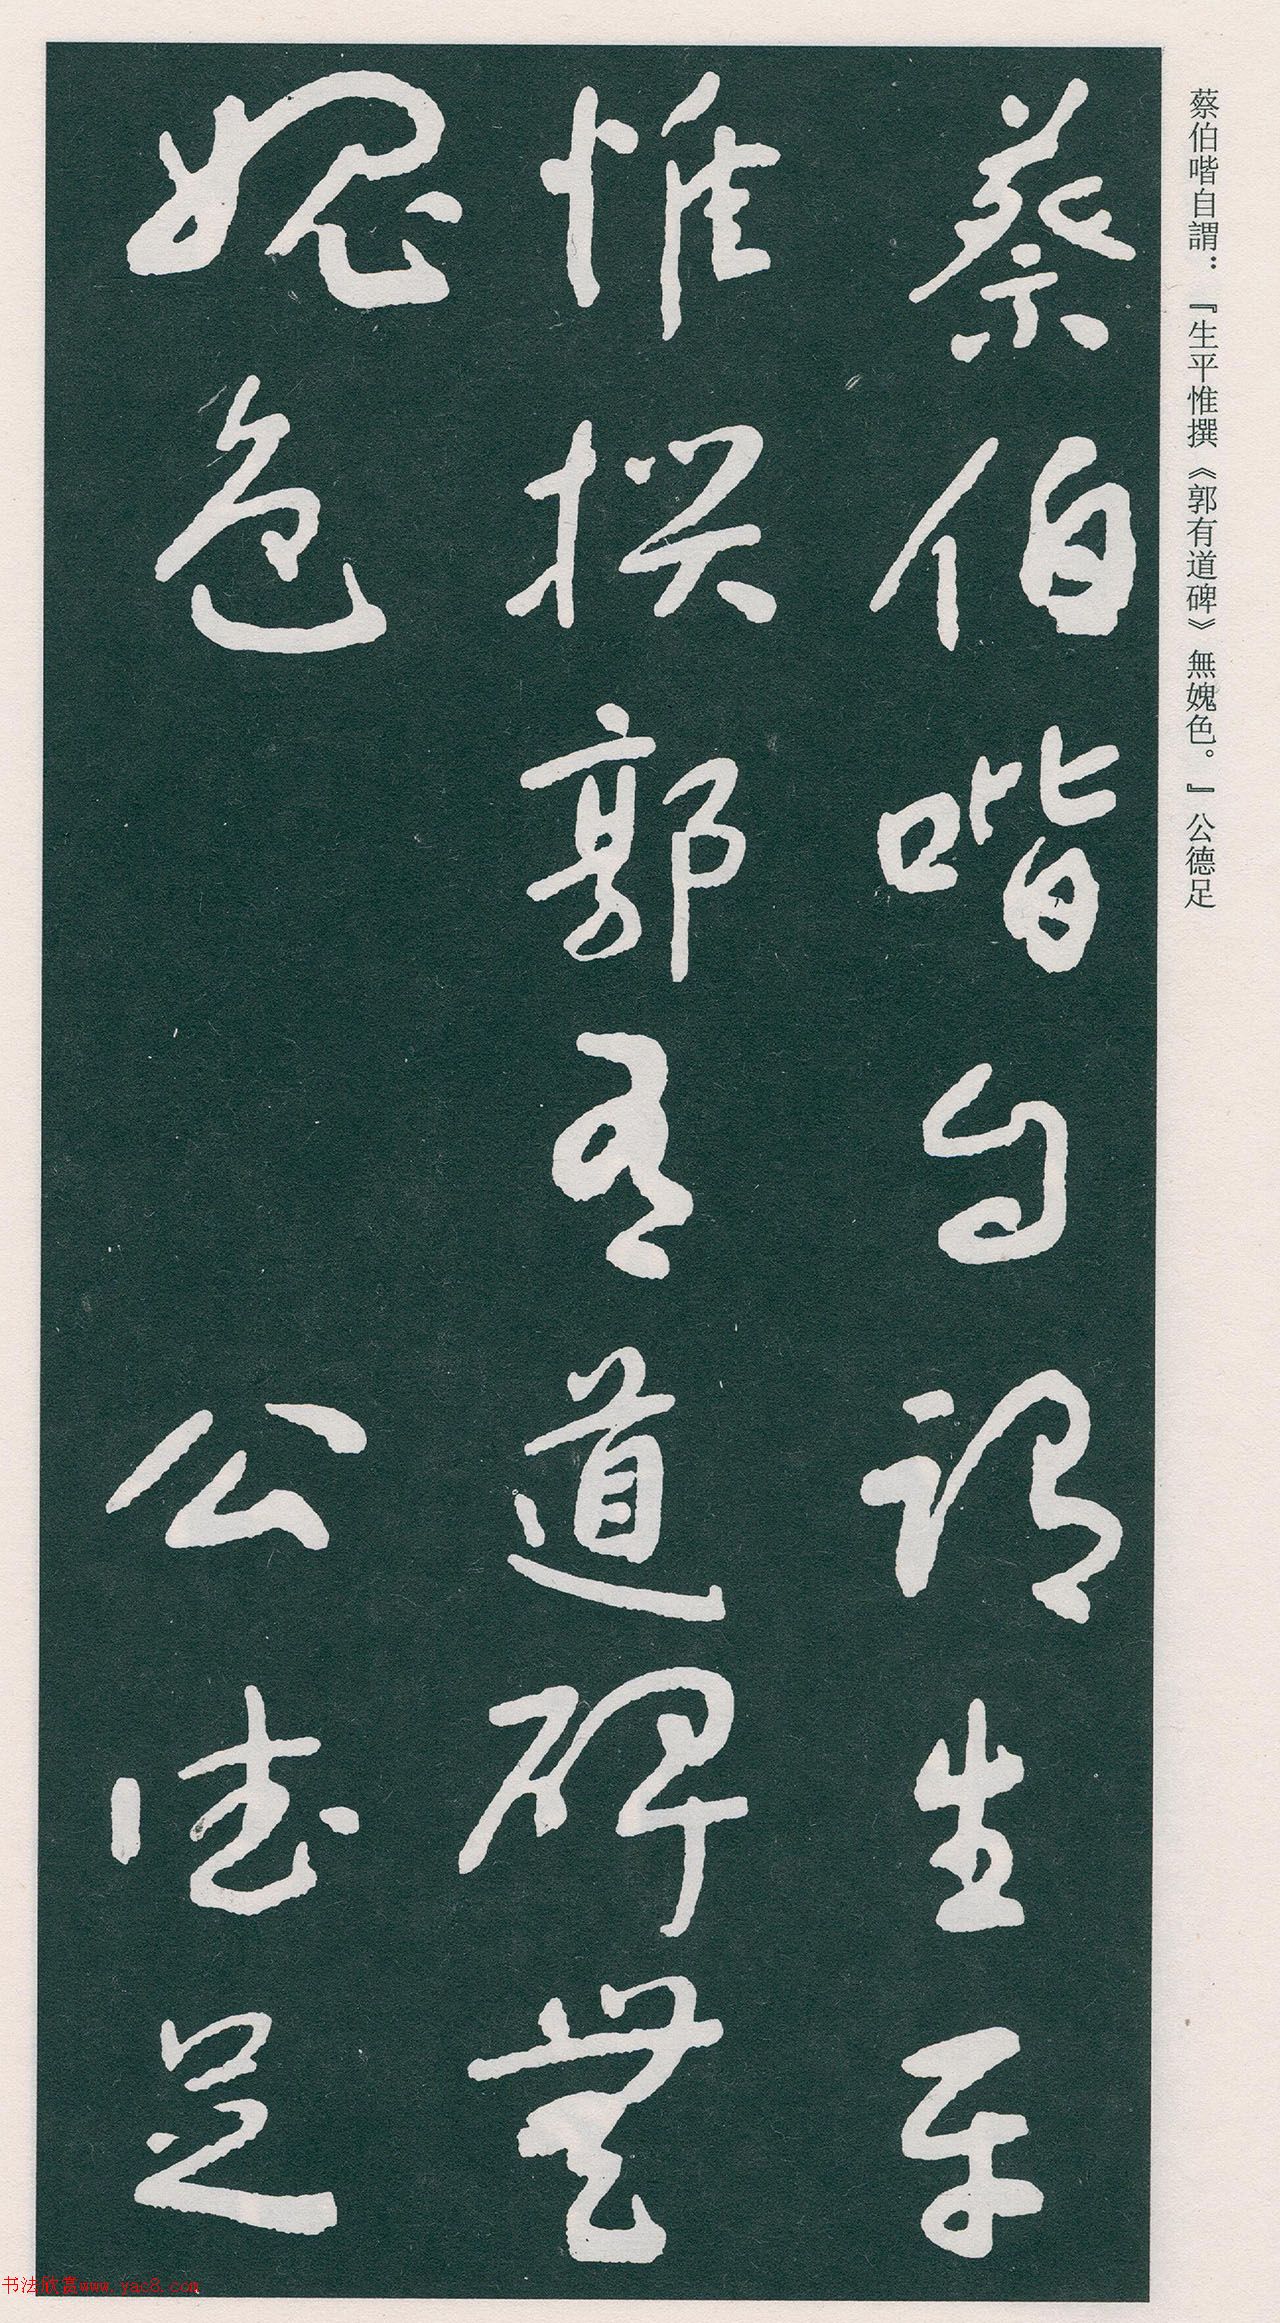 蔡伯喈自謂：『生平惟撰《郭有道碑》無媿色。』公德足
蔡伯喈自謂生平
惟撰郭有道碑無
媿色　公德足
书法欣赏www.yac8.com